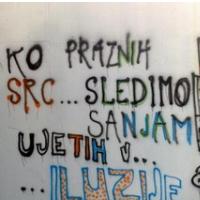 KO PRAZNIH
SRC... SLEDIMO
SANJAM
UJETIH V...
... ILUZIJE